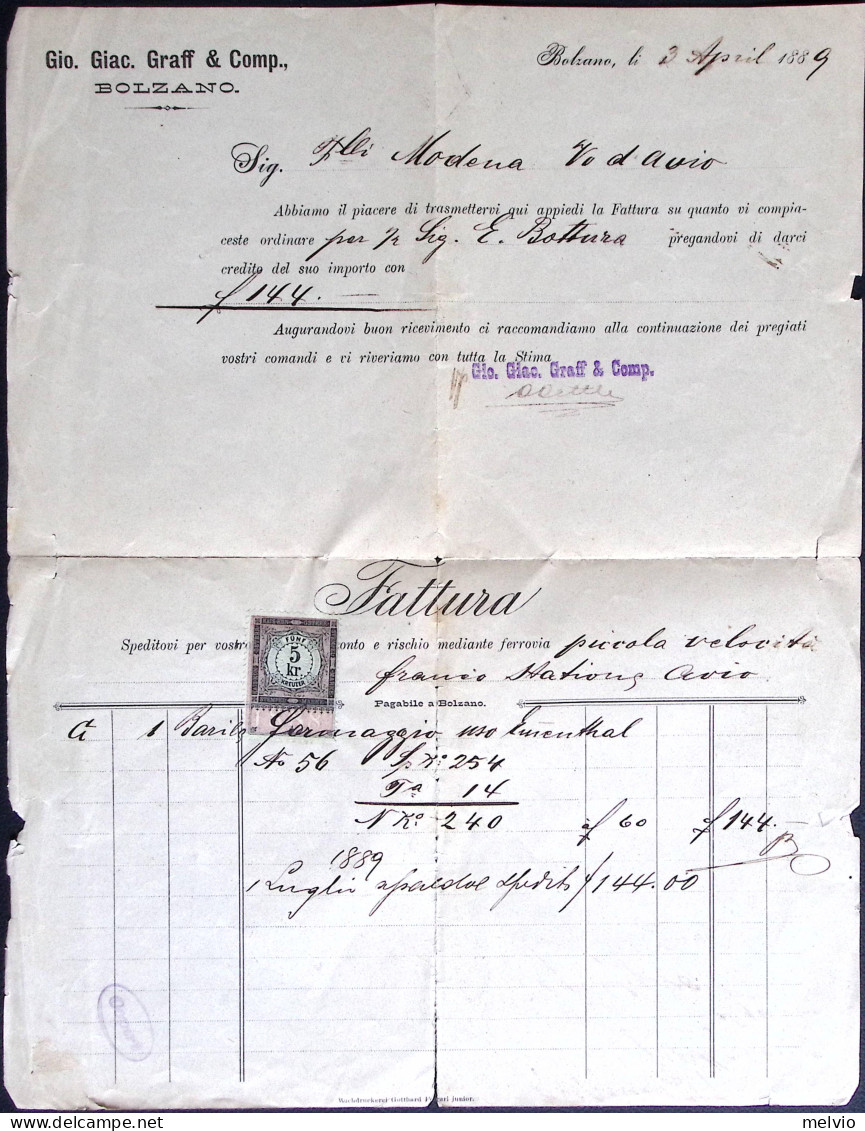 Gio. Giac. Graff & Comp.,
BOLZANO.
Bolzano, li 3 April 1889
Sig. Flli Modena Vo d'Avio
Abbiamo il piacere di trasmettervi qui appiedi la Fattura su quanto vi compia-
ceste ordinare per Sig. E. Bottura pregandovi di darci
credito del suo importo con
f 144. —
Augurandovi buon ricevimento ci raccomandiamo alla continuazione dei pregiati
vostri comandi e vi riveriamo con tutta la Stima
Gio. Giac. Graff & Comp.
Fattura
Speditovi per vostro conto e rischio mediante ferrovia piccola velocità
franco Stations Avio
FÜNF
5
kr.
KREUZER
Pagabile a Bolzano.
1 Barile Formaggio uso Ementhal
No 56 Sp Ko 254
Ta 14
N Ko 240 af 60 f 144. —
1889
1 Luglio a saldo spedito f 144.00
Wachsdruckerei Gotthard Junior.
melvio